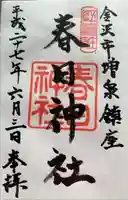 金沢市増泉鎮座
春日神社
平成二十七年六月三日奉拝
春日
神社